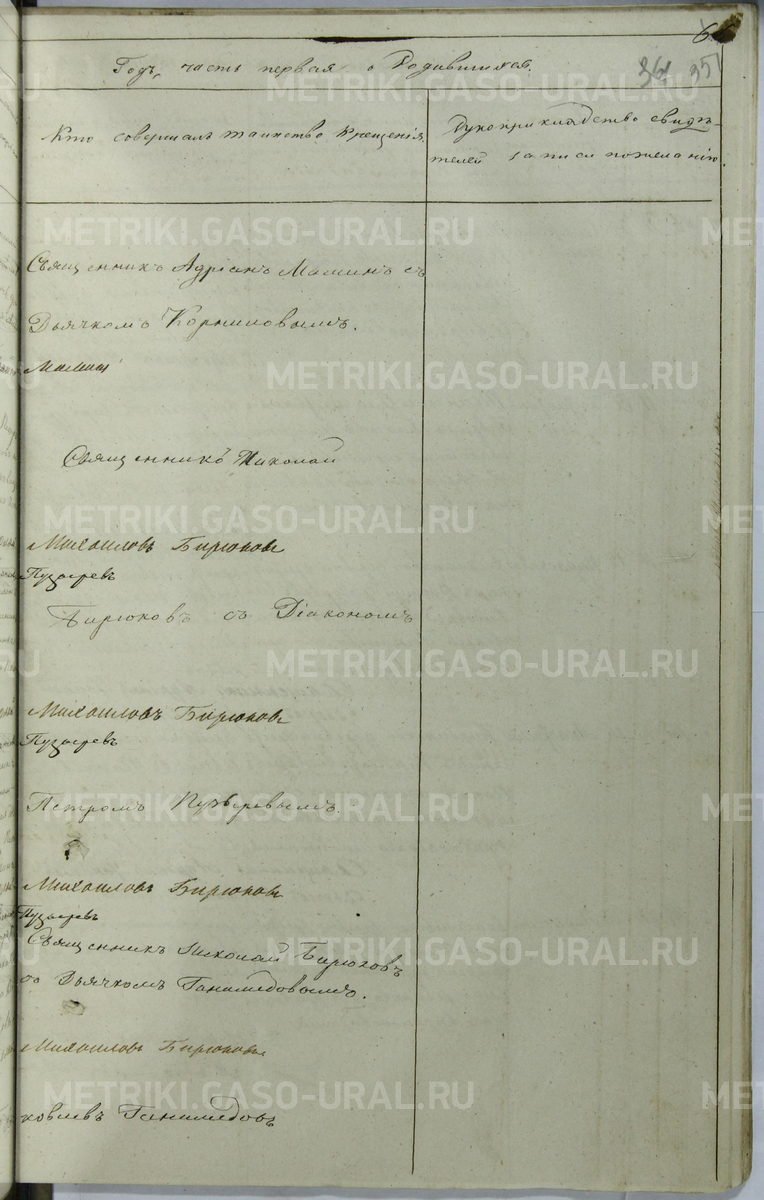 6
Годъ, часть первая о Родившихся.
34 351
Кто совершалъ таинство крещенія.
Рукоприкладство свидѣ-
телей записи по желанію.
Священникъ Адріанъ Маминъ съ
Дьячкомъ Корниловымъ.
Маминъ
Священникъ Николай
Михаиловъ Бирюковъ
Пузыревъ
Бирюковъ съ Діакономъ
Михаиловъ Бирюковъ
Пузыревъ
Петромъ Пузыревымъ.
Михаиловъ Бирюковъ
Пузыревъ
Священникъ Николай Бирюковъ
съ Дьячкомъ Ганимедовымъ.
Михаиловъ Бирюковъ
Ганимедовъ
METRIKI.GASO-URAL.RU